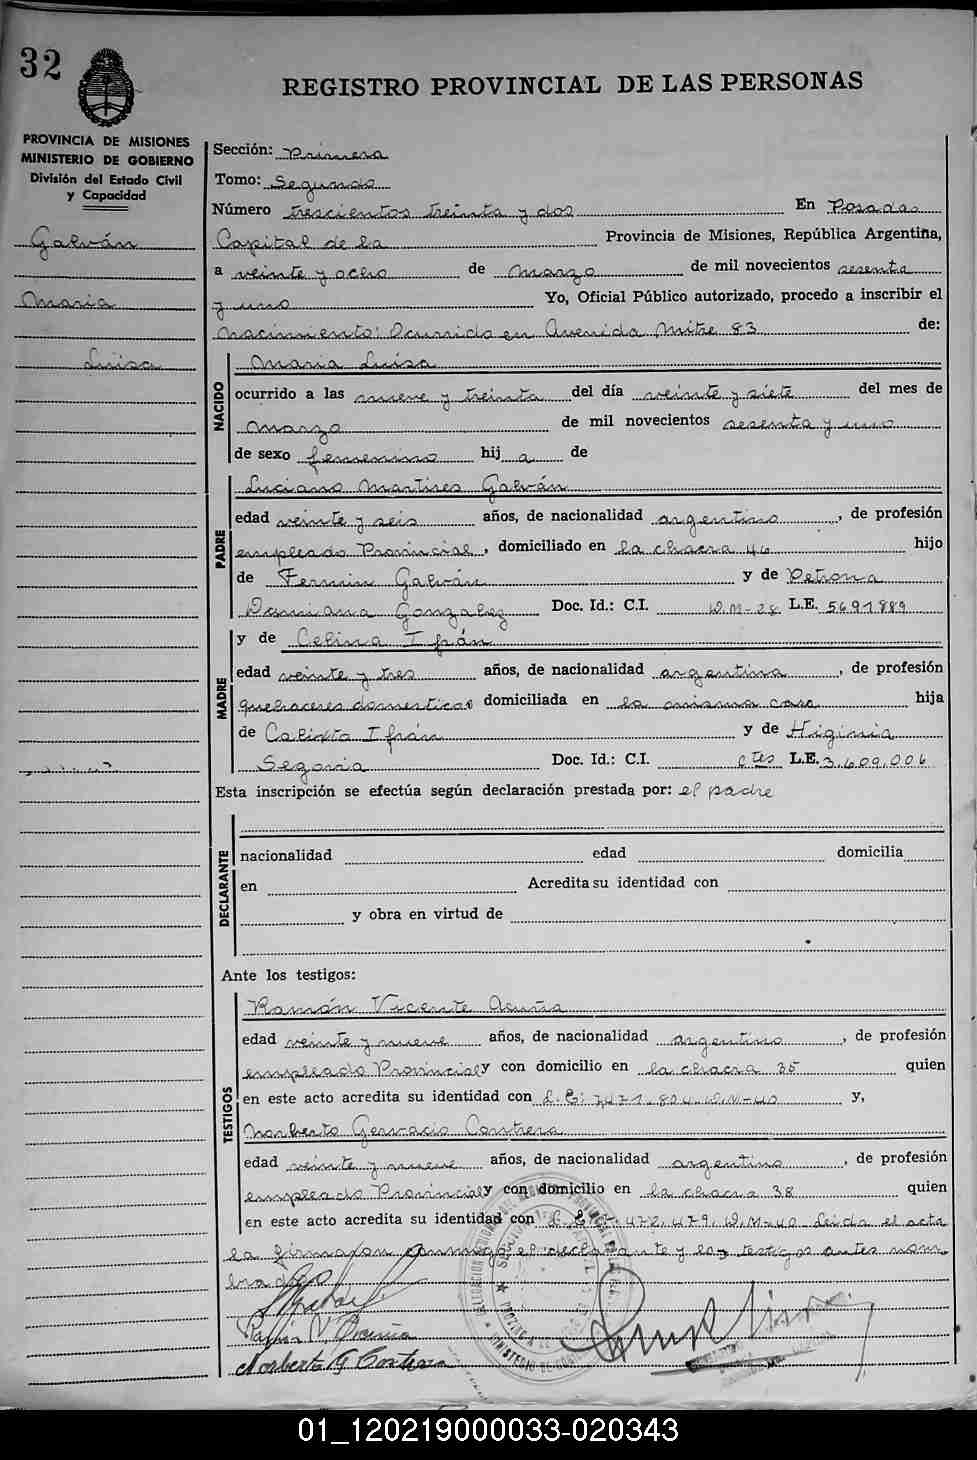 32
REGISTRO PROVINCIAL DE LAS PERSONAS
PROVINCIA DE MISIONES
MINISTERIO DE GOBIERNO
División del Estado Civil
y Capacidad
Galván
Maria
Luisa
Sección: Primera
Tomo: Segundo
Número trescientos treinta y dos En Posadas
Capital de la Provincia de Misiones, República Argentina,
a veinte y ocho de marzo de mil novecientos sesenta
y uno Yo, Oficial Público autorizado, procedo a inscribir el
nacimiento: Ocurrido en Avenida Mitre 83 de:
NACIDO
Maria Luisa
ocurrido a las nueve y treinta del día veinte y siete del mes de
marzo de mil novecientos sesenta y uno
de sexo femenino hij a de
PADRE
Luciano Martires Galván
edad veinte y seis años, de nacionalidad argentino, de profesión
empleado Provincial, domiciliado en la chacra 46 hijo
de Fermin Galván y de Petrona
Damiana Gonzalez Doc. Id.: C.I. D.M-28 L.E. 5691889
MADRE
y de Celina Ifrán
edad veinte y tres años, de nacionalidad argentina, de profesión
quehaceres domesticos domiciliada en la misma casa hija
de Calixto Ifrán y de Higinia
Segovia Doc. Id.: C.I. Ctes L.E. 3.609.006
Esta inscripción se efectúa según declaración prestada por: el padre
DECLARANTE
nacionalidad edad domicilia
en Acredita su identidad con
y obra en virtud de
Ante los testigos:
TESTIGOS
Ramón Vicente Acuña
edad veinte y nueve años, de nacionalidad argentino, de profesión
empleado Provincial y con domicilio en la chacra 35 quien
en este acto acredita su identidad con L.E: 7471.804.D.M-40 y,
Norberto Gervacio Contrera
edad veinte y nueve años, de nacionalidad argentino, de profesión
empleado Provincial y con domicilio en la chacra 38 quien
en este acto acredita su identidad con L.E 7.472.479.D.M-40 Leida el acta
la firmaron conmigo el declarante y los testigos antes nom
brados
Ramón V Acuña
Norberto G Contrera
01_120219000033-020343